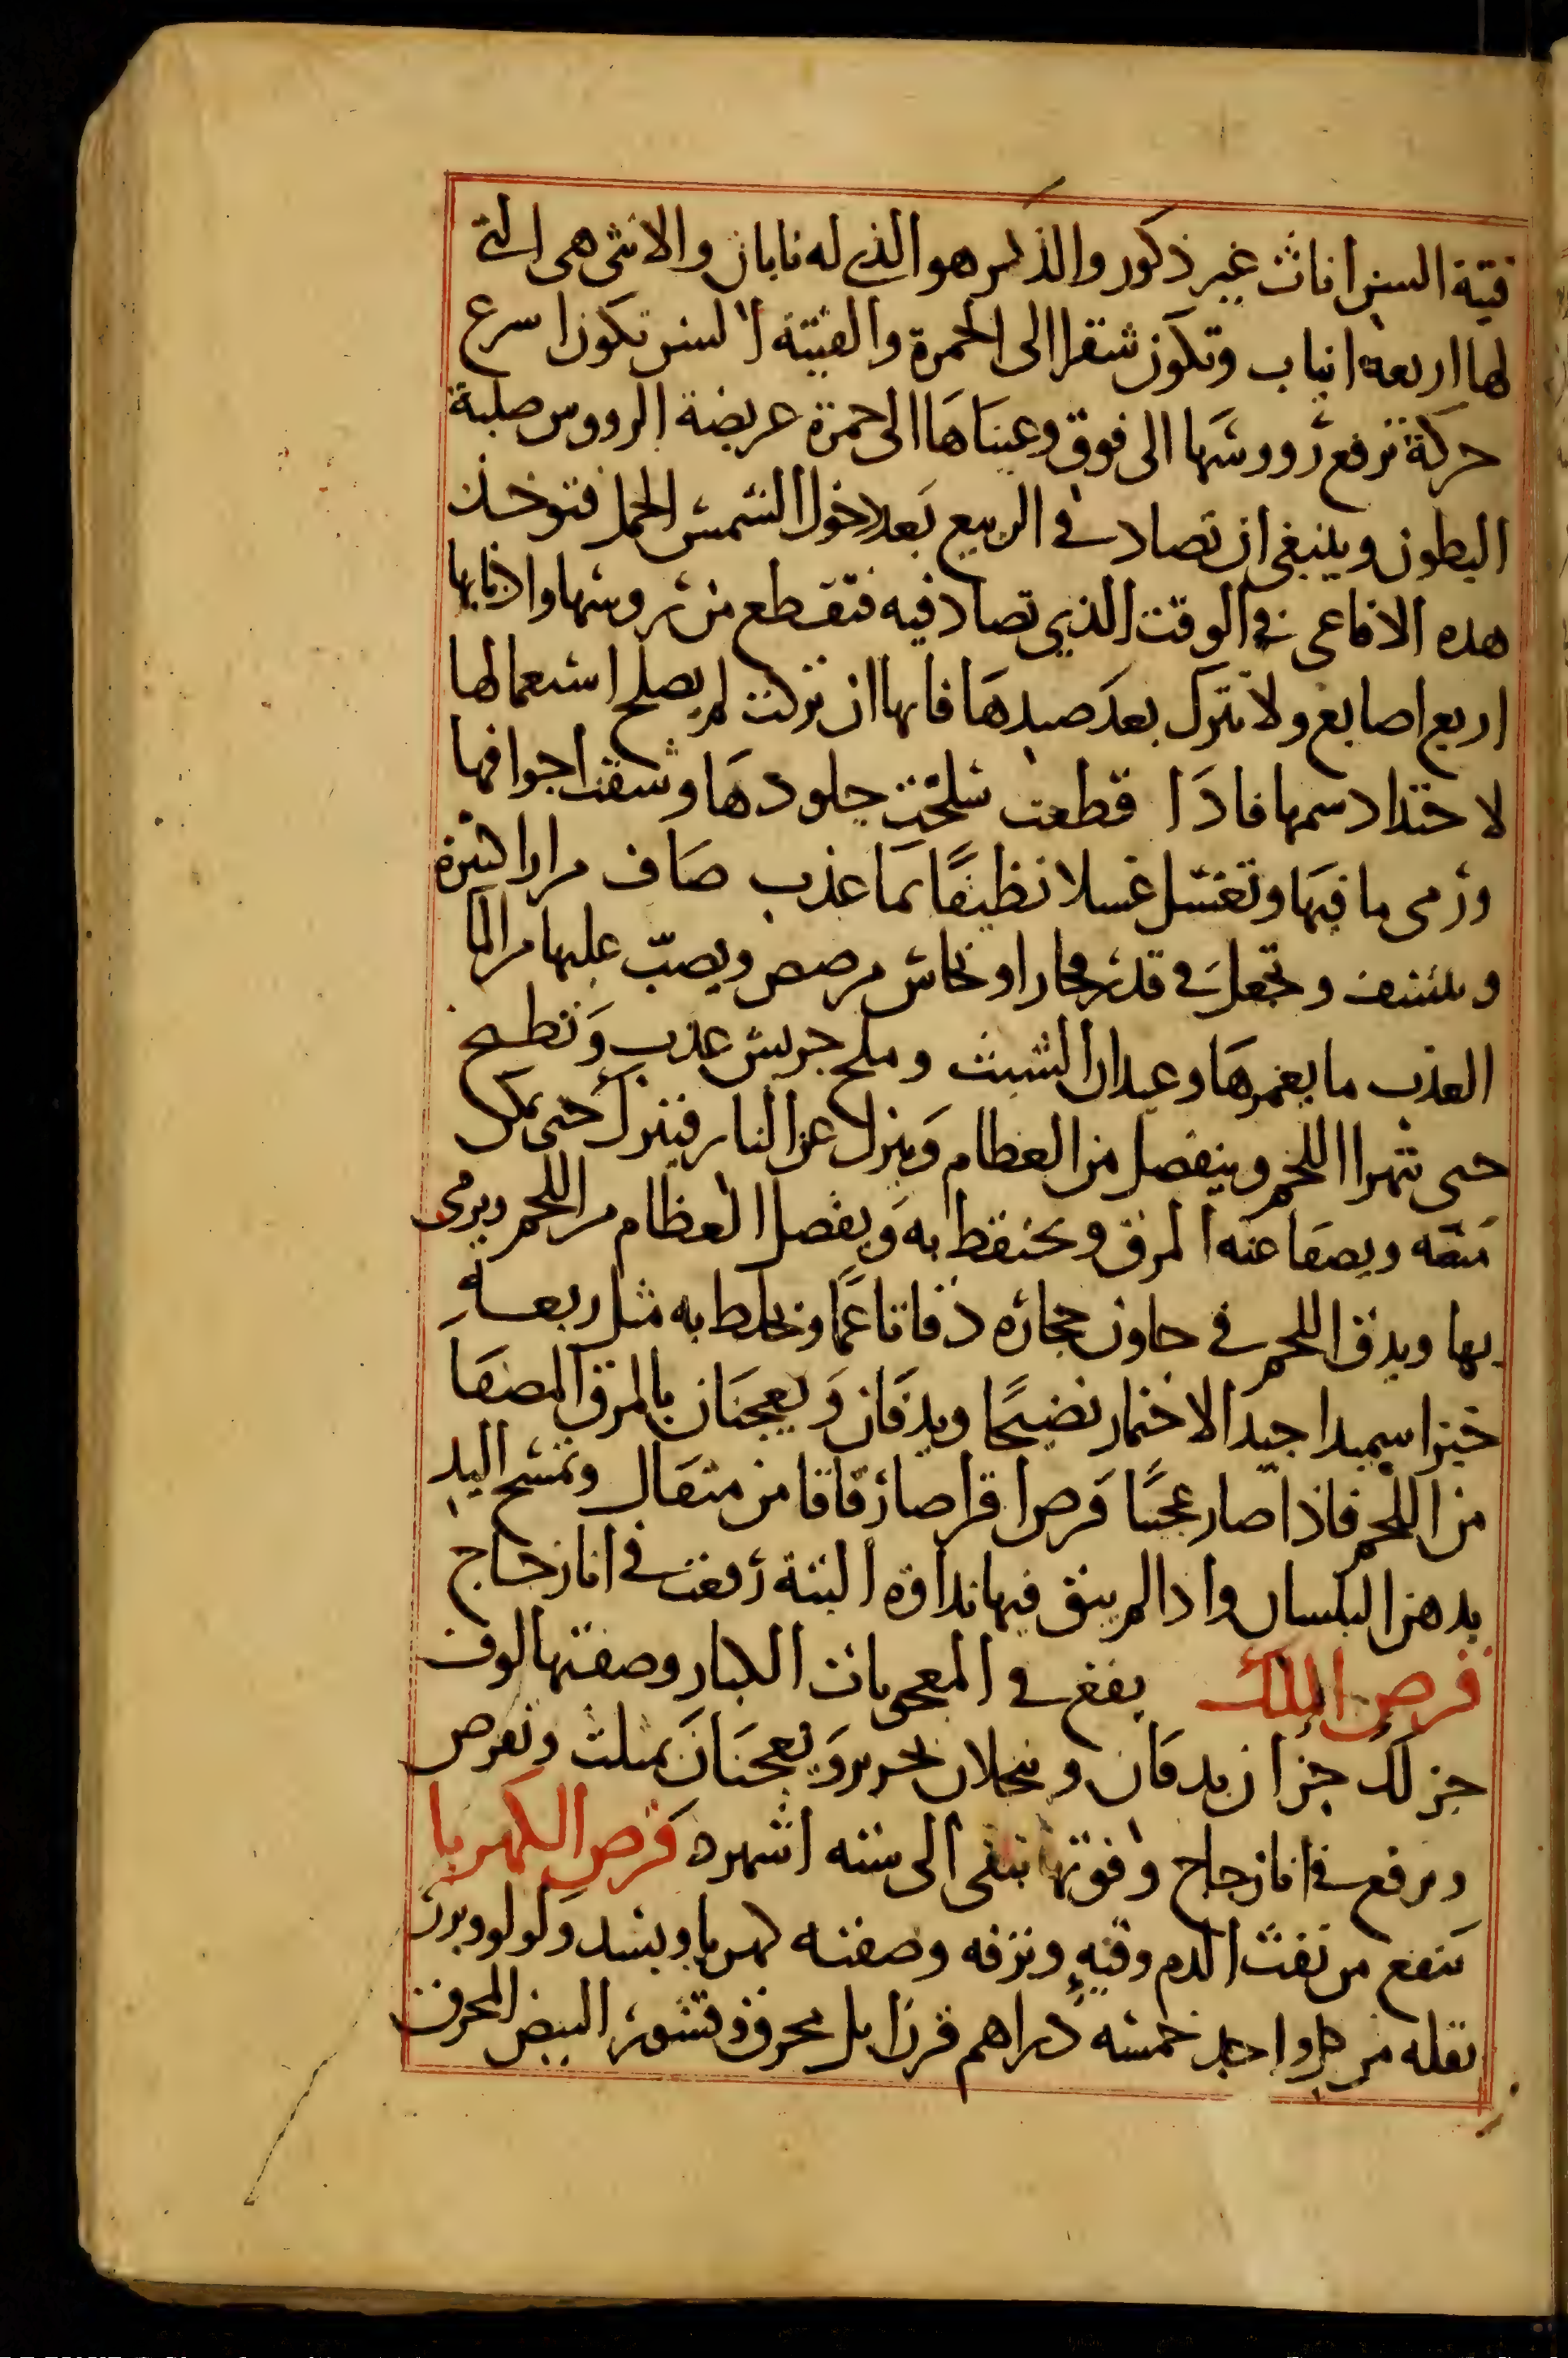 فتية السن اناث غير ذكور والذكر هو الذي له نابان والانثى هى التي
لها اربعة انياب وتكون شقرا الى الحمرة والفتية السن تكون اسرع
حركة ترفع رووسها الى فوق وعيناها الى حمرة عريضة الرووس صلبة
البطون وينبغي ان تصاد في الربيع بعد دخول الشمس الحمل فتوخذ
هذه الافاعى في الوقت الذي تصاد فيه فتقطع من روسها واذنابها
اربع اصابع ولا تترك بعد صيدها فانها ان تركت لم يصلح استعمالها
لاحتداد سمها فاذا قطعت سلخت جلودها وشقت اجوافها
ورمى ما فيها وتغسل غسلا نظيفا بما عذب صاف مرارا كثيرة
وتنشف وتجعل في قدر فخار او نحاس مرصص ويصب عليها من الما
العذب ما يغمرها وعيدان الشبث وملح جريش عذب وتطبخ
حتى يتهرا اللحم وينفصل من العظام وينزل عن النار فيترك حتى يمكن
مسه ويصفا عنه المرق ويحتفظ به ويفصل العظام من اللحم ويرمى
بها ويدق اللحم في هاون حجاره دقا ناعما ويخلط به مثل ربعه
خبزا سميدا جيد الاختمار نضيجا ويدقان ويعجنان بالمرق المصفا
من اللحم فاذا صار عجنا قرص اقراصا رقاقا من مثقال وتمسح اليد
بدهن البلسان واذا لم يبق فيها نداوة البتة رفعت في انا زجاج
قرص الملك يقع في المعجونات الكبار وصفتها لوف
جز لك جزان يدقان وينخلان بحرير ويعجنان بمثلث وتقرص
ويرفع في انا زجاج وقوتها تبقى الى ستة اشهر ه قرص الكهربا
ينفع من نفث الدم وقيه ونزفه وصفته كهربا وبسد ولولو وبزر
بقله من كل واحد خمسة دراهم قرن ايل محرق وقشور البيض المحرق